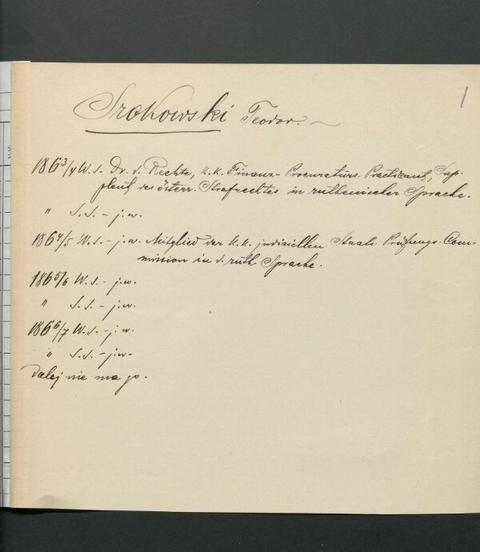 1
Srokowski Teodor. ~
1863/4 W. S. Dr. d. Rechte, k.k. Finanz-Procuraturs-Practicant, Sup-
plent des österr. Strafrechtes in ruthenischer Sprache.
" S. S. - j. w.
1864/5 W. S. - j. w. Mitglied der k.k. judiziellen Staats-Prüfungs-Com-
mission in d. ruth. Sprache.
1865/6 W. S. - j. w.
" S. S. - j. w.
1866/7 W. S. - j. w.
" S. S. - j. w.
Dalej nie ma go.